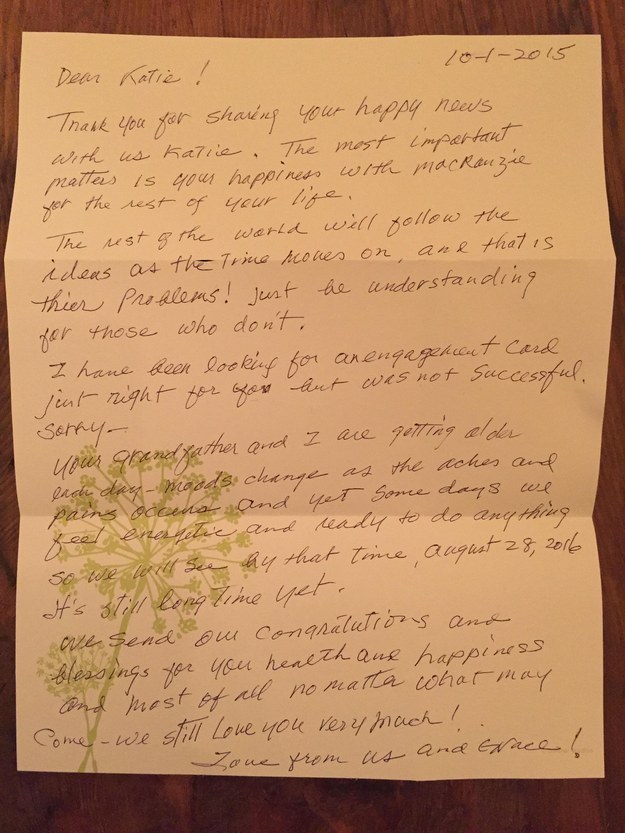 10-1-2015
Dear Katie!
Thank you for sharing your happy news
with us Katiie. The most important
matters is your happiness with MacKenzie
for the rest of your life.
The rest of the world will follow the
ideas as the Time moves on, and that is
thier Problems! Just be understanding
for those who don't.
I have been looking for an engagement Card
just right for you but was not successful.
Sorry—
Your grandfather and I are getting older
each day - moods change as the aches and
pains occurs and yet some days we
feel energetic and ready to do anything
so we will see by that time, August 28, 2016
it's still long time yet.
We send our Congratutions and
blessings for you health and happiness
and most of all no matter what may
Come - we still Love you very much!
Love from us and Grace!